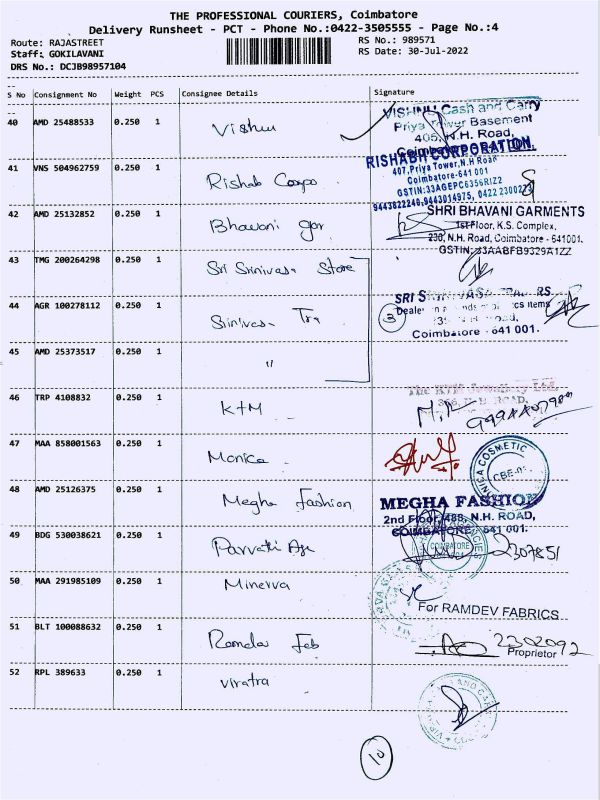 THE PROFESSIONAL COURIERS, Coimbatore
Delivery Runsheet - PCT - Phone No.:0422-3505555 - Page No.:4
Route: RAJASTREET
RS No.: 989571
Staff: GOKILAVANI
RS Date: 30-Jul-2022
DRS No.: DCJB98957104
S No Consignment No Weight PCS Consignee Details Signature
40 AMD 25488533 0.250 1 Vishnu
VISHNU Cash and Carry
Priya Tower Basement
405, N.H. Road,
Coimbatore
41 VNS 504962759 0.250 1 Rishab Corpo
RISHABH CORPORATION.
407, Priya Tower, N.H Road
Coimbatore-641 001
GSTIN:33AGEPC6356R1Z2
9443822249, 9443014975, 0422 2300273
42 AMD 25132852 0.250 1 Bhavani gar
SHRI BHAVANI GARMENTS
1st Floor, K.S. Complex,
230, N.H. Road, Coimbatore - 641001.
GSTIN: 33AABFB9329A1ZZ
43 TMG 200264298 0.250 1 Sri Srinivasa Store
SRI
44 AGR 100278112 0.250 1 Srinivasa Tra
3
Coimbatore - 641 001.
45 AMD 25373517 0.250 1 "
46 TRP 4108832 0.250 1 KTM
47 MAA 858001563 0.250 1 Monica
COSMETIC
CBE
48 AMD 25126375 0.250 1 Megha Fashion
MEGHA FASHION
2nd Floor, 488, N.H. ROAD,
COIMBATORE - 641 001.
49 BDG 530038621 0.250 1 Parvathi Age
COIMBATORE
2307851
50 MAA 291985109 0.250 1 Minerva
For RAMDEV FABRICS
51 BLT 100088632 0.250 1 Ramdev Fab
2302092
Proprietor
52 RPL 389633 0.250 1 Viratra
10